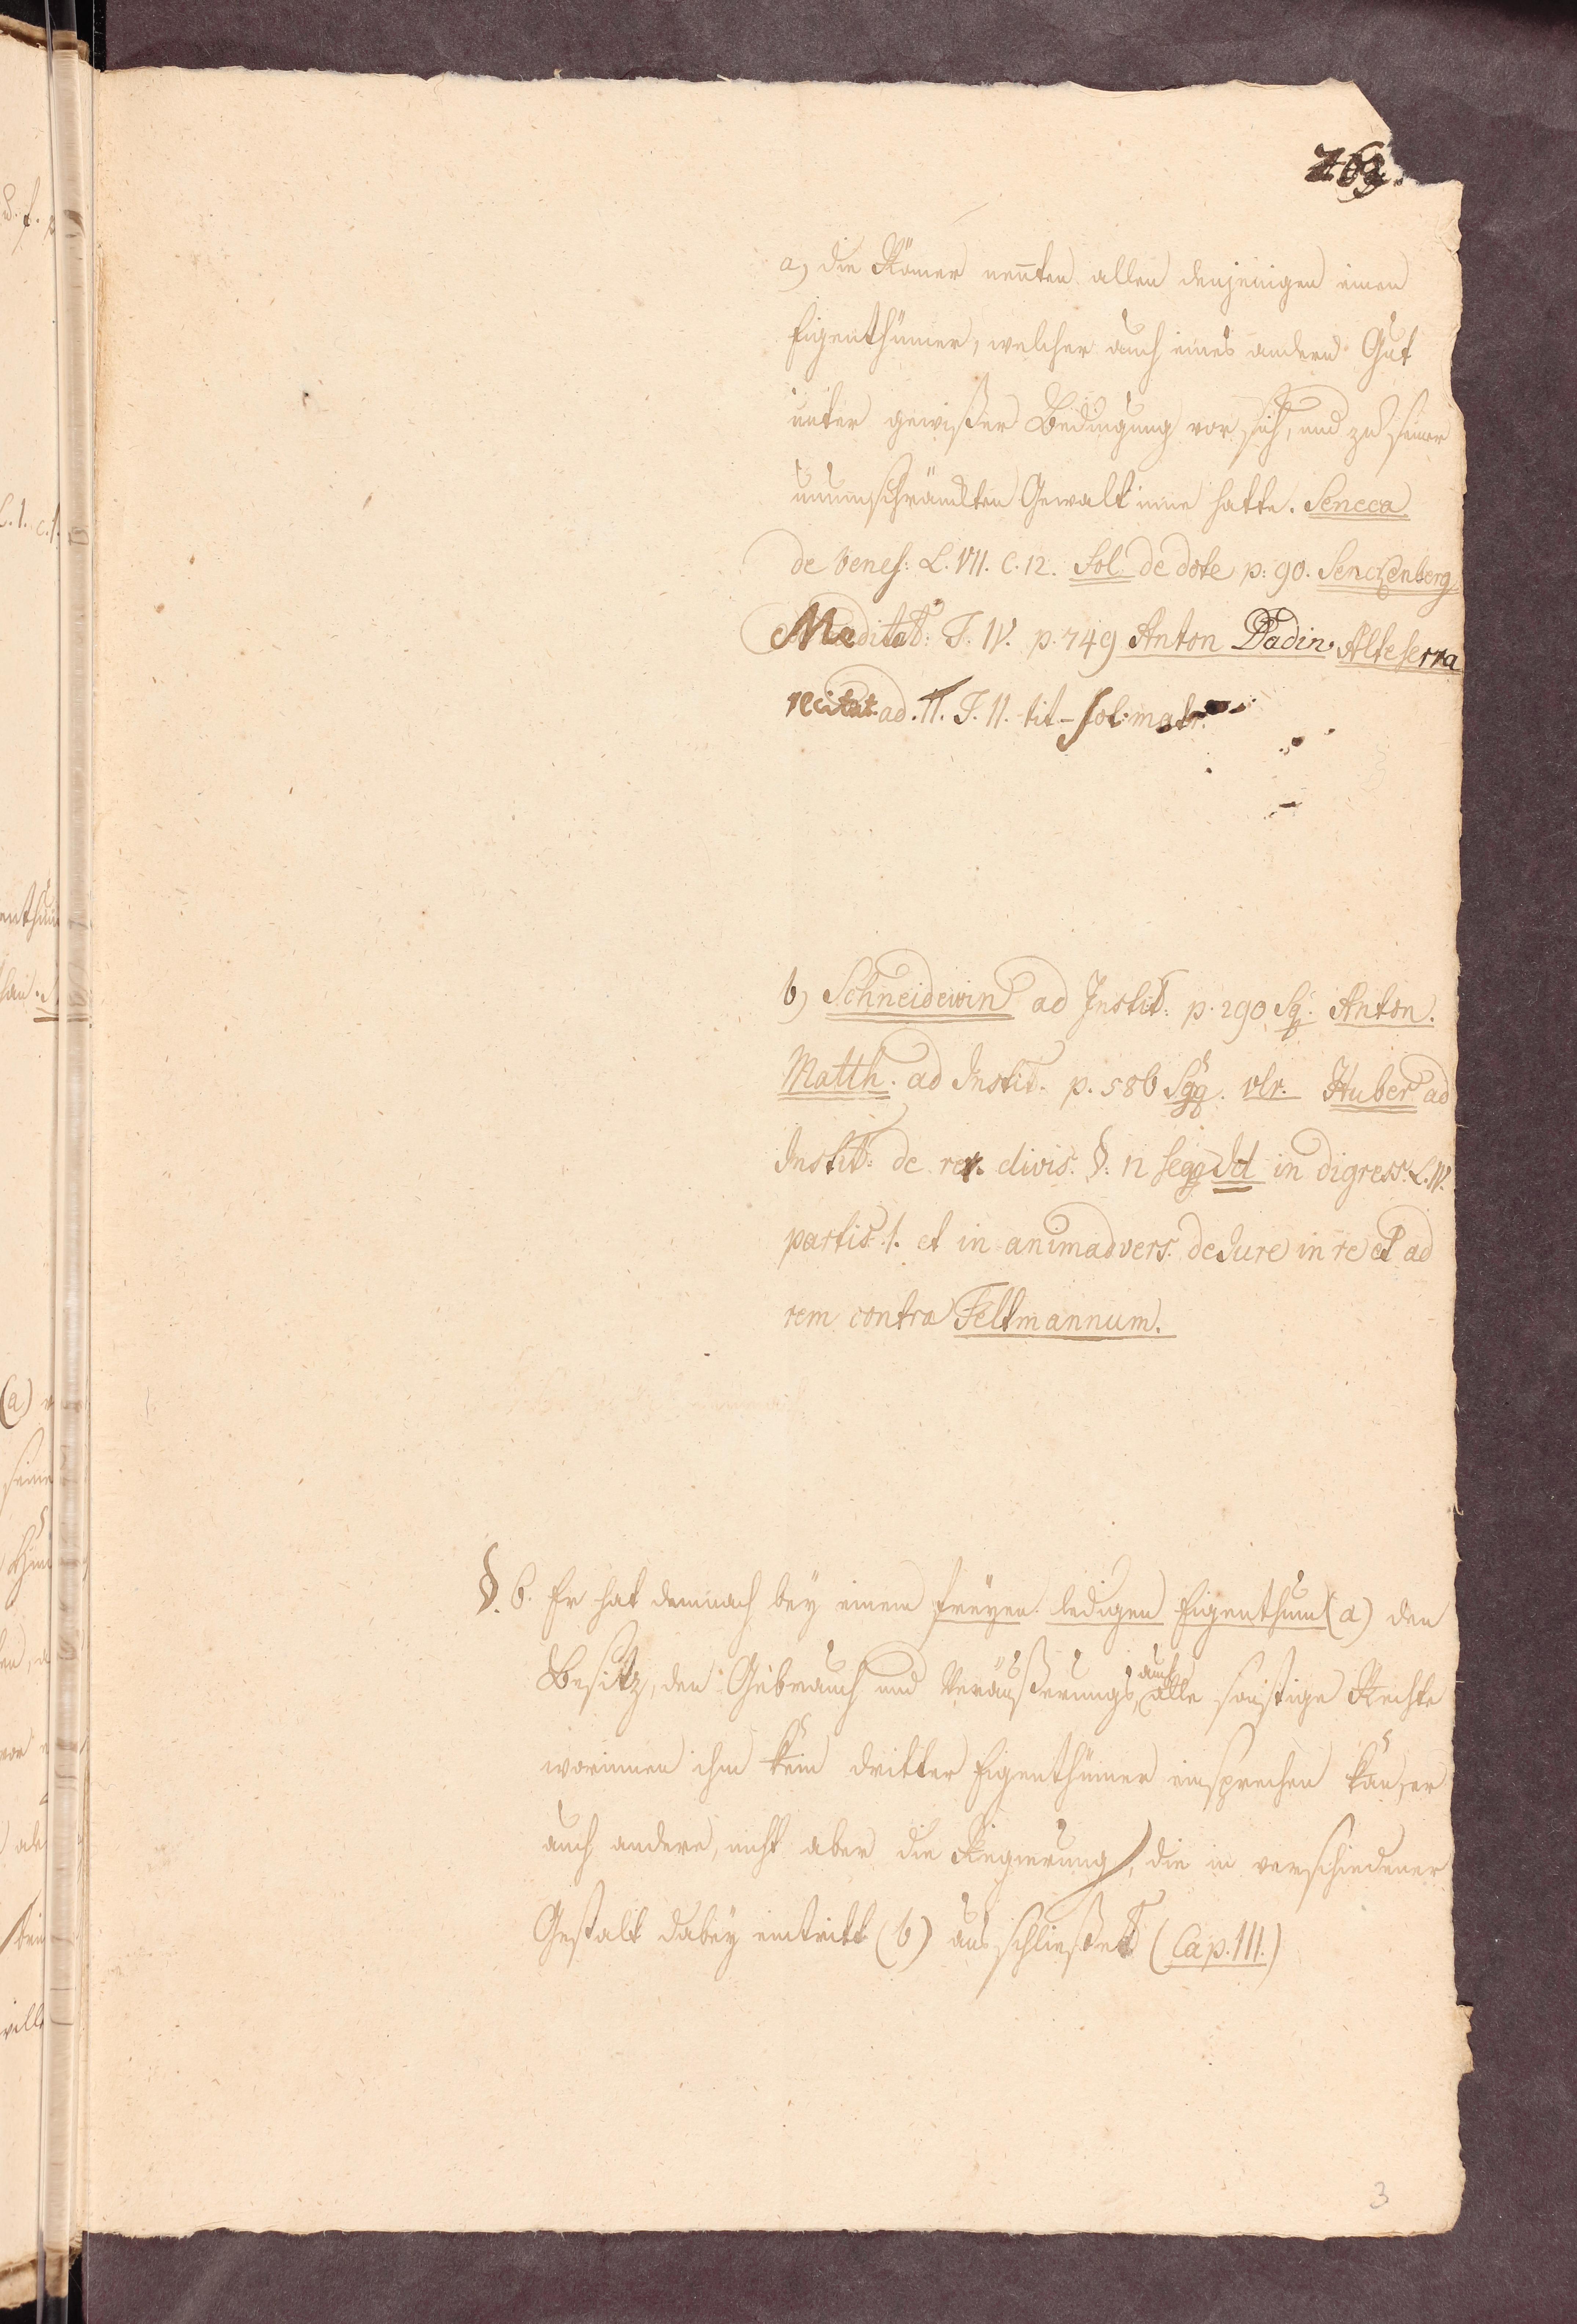 263.
a, die Römer nenten allen denjenigen einen
Eigenthümer, welcher auch eines andern Gut
unter gewißer Bedingung vor sich, und zu seiner
unumschränckten Gewalt inne hatte. Seneca
de benef: L. VII. C. 12. Sol de dote p: 90. Senckenberg
Meditat: T. IV. p. 749 Anton Dadin. Alteserra
recitat. ad. II. T. II. tit - sol: matr.
b, Schneidewin ad Instit: p. 290 Sq. Anton.
Matth. ad Instit. p. 586 Sqq. vlr. Huber ad
Instit: de rer. divis. §. 12 seqq Id in digress. L. IV.
partis 1. et in animadvers. de Jure in re et ad
rem contra Feltmannum.
§. 6. Er hat demnach bey einem freyen ledigen Eigenthum (a) den
Besitz, den Gebrauch und Veräußerungs, auch
alle sonstige Rechte
worinnen ihm kein dritter Eigenthümer einsprechen kan, er
auch andere, nicht aber die Regierung, die in verschiedener
Gestalt dabey eintritt (b) ausschließet (Cap. III.)
3